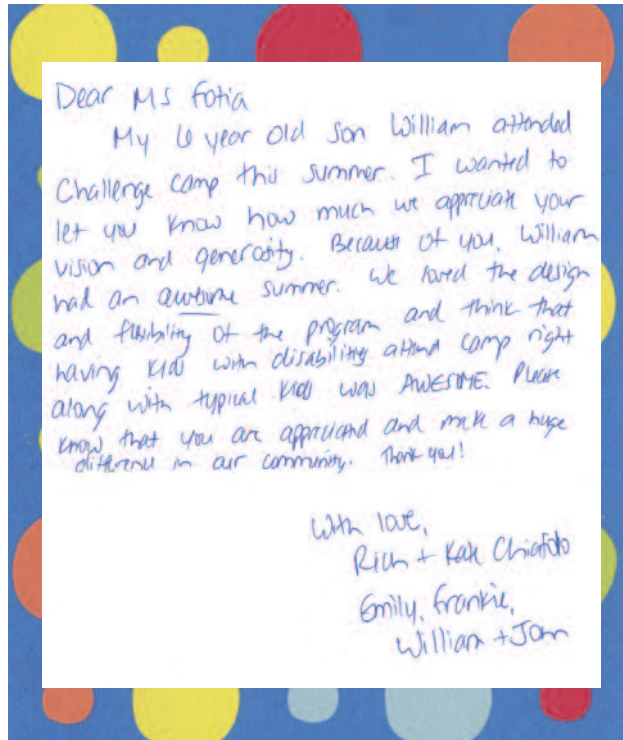 Dear Ms Fotia
My 6 year old son William attended
Challenge camp this summer. I wanted to
let you know how much we appreciate your
vision and generosity. Because of you, William
had an awesome summer. We loved the design
and flexibility of the program and think that
having kids with disability attend camp right
along with typical kids was AWESOME. Please
know that you are appreciated and make a huge
difference in our community. Thank you!
With love,
Rich + Kate Chiafolo
Emily, Frankie,
William + John